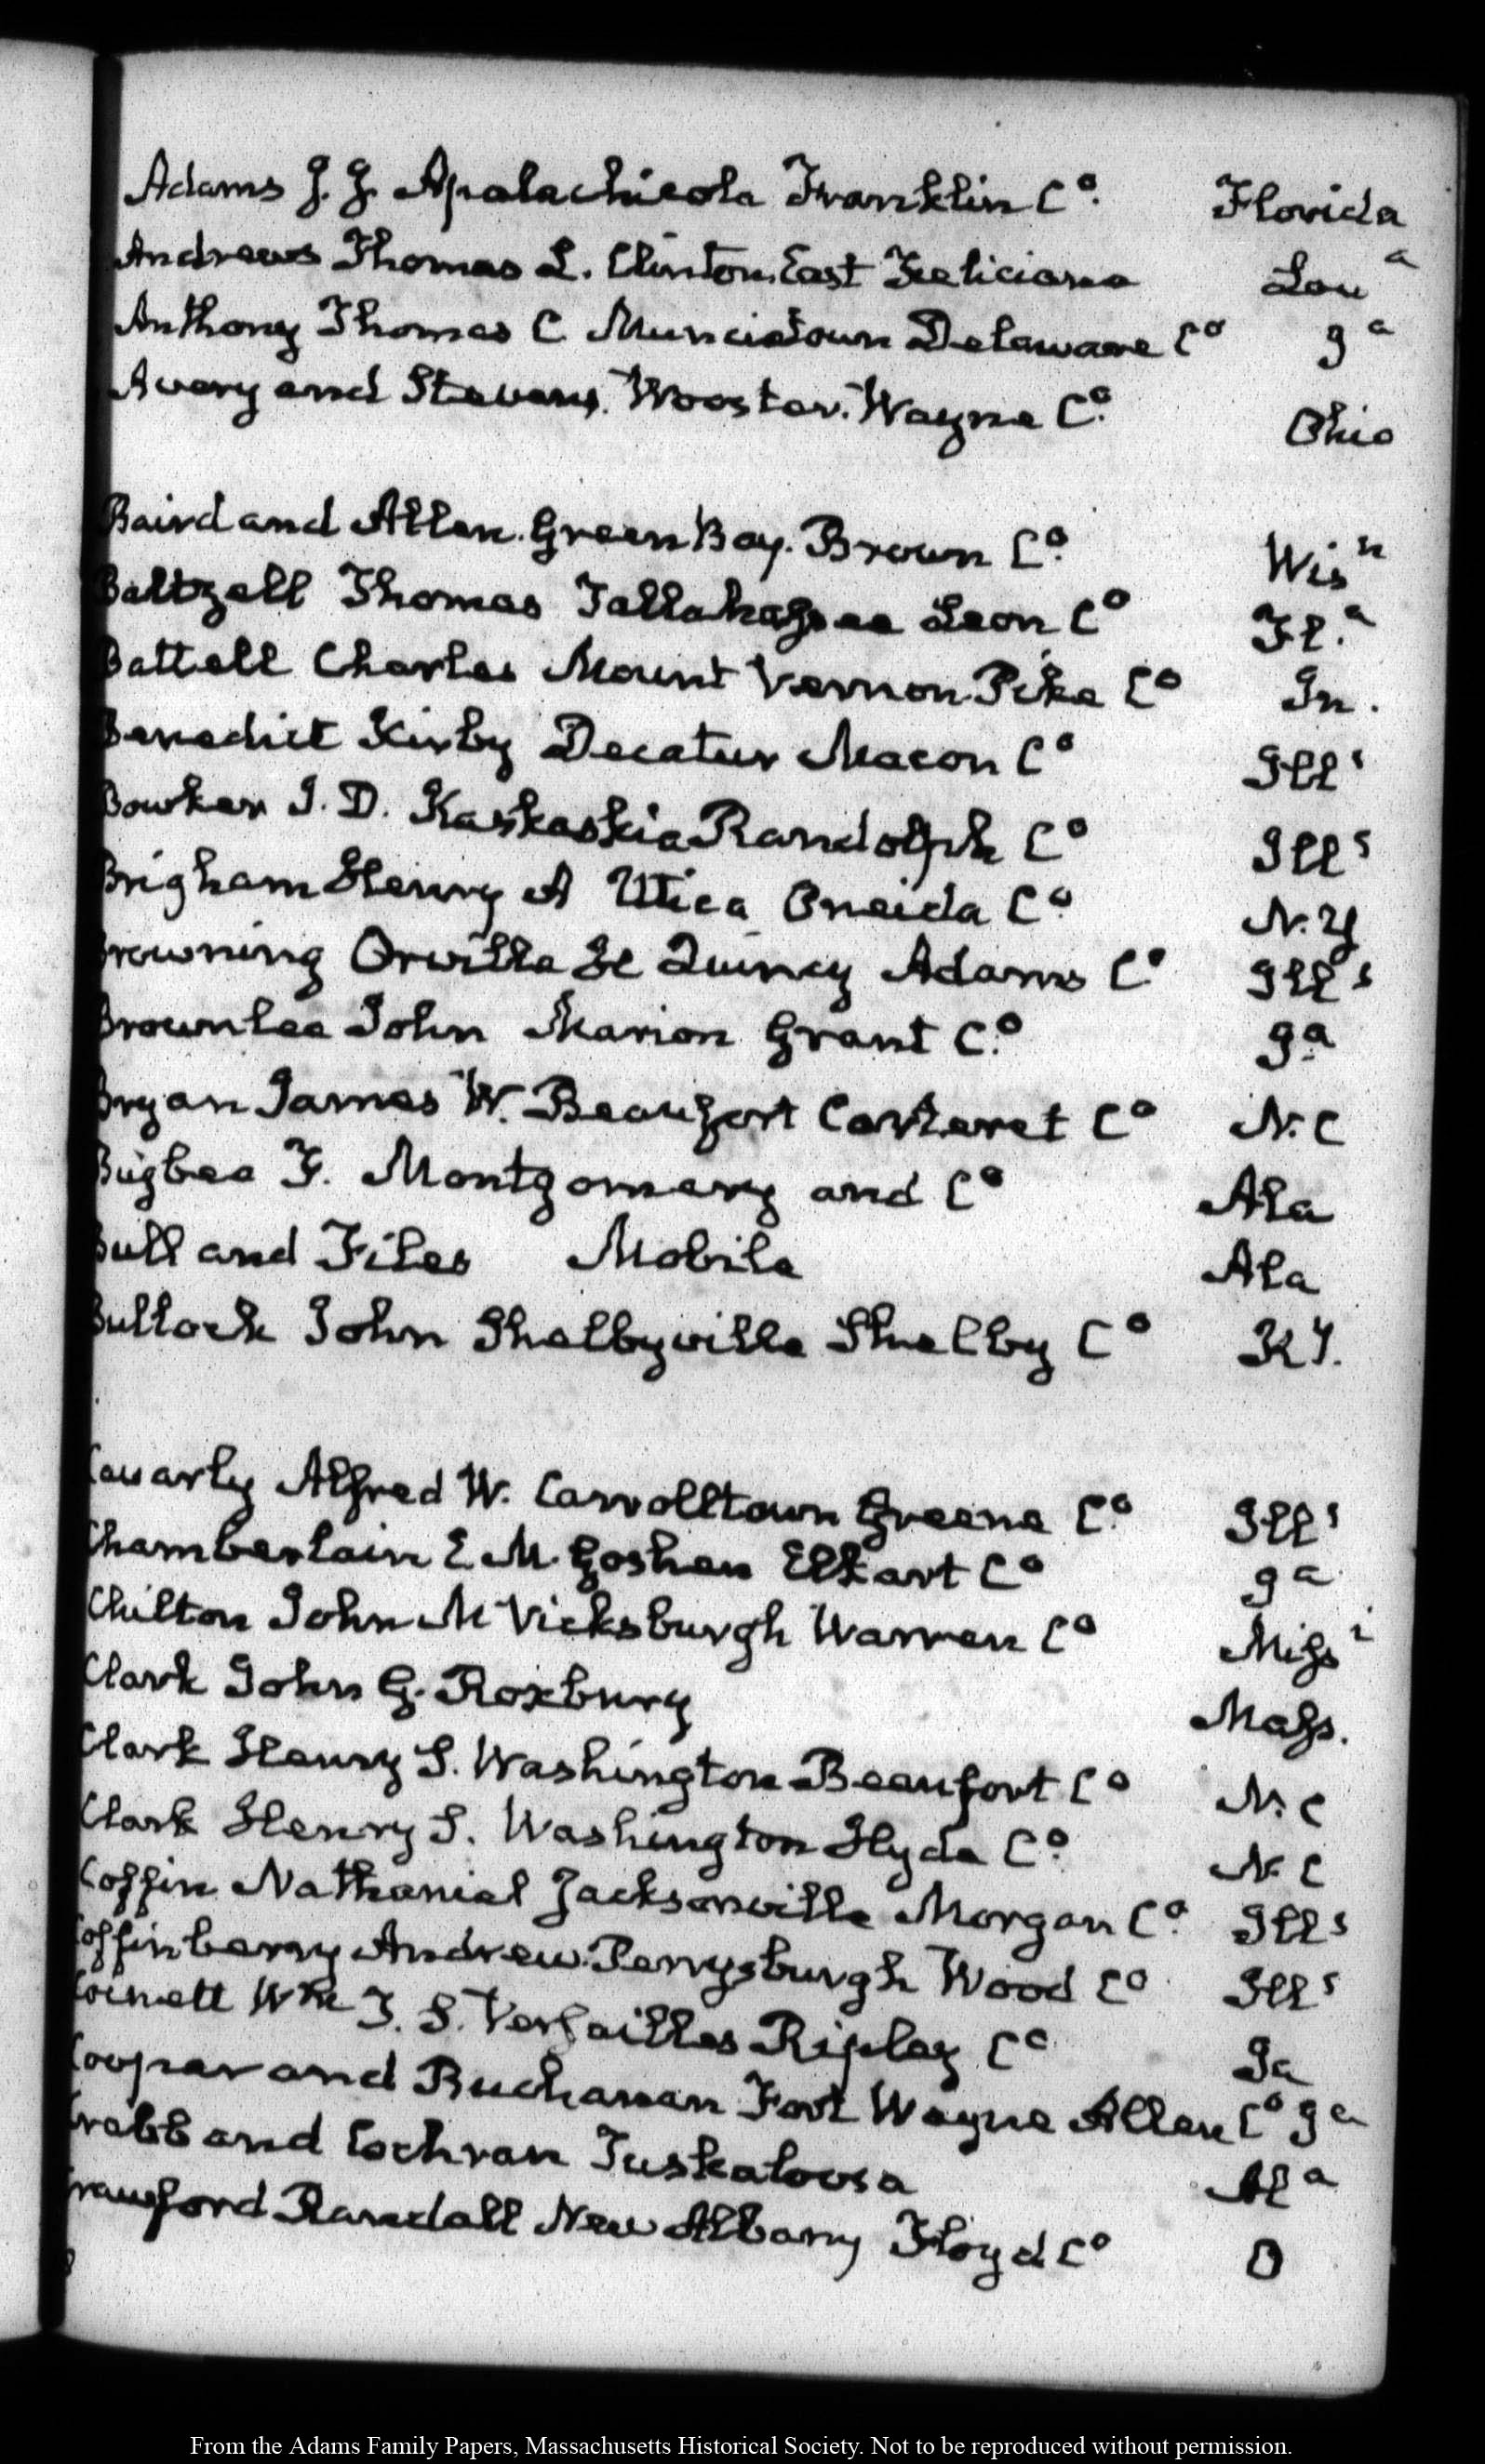 Adams J. J. Apalachicola Franklin Co. Florida
Andrews Thomas L. Clinton East Feliciana Loua
Anthony Thomas C Munciatown Delaware Co Ja
Avery and Stevens. Wooster. Wayne Co. Ohio
Baird and Allen. Green Bay. Brown Co. Wisn
Baltzell Thomas Tallahassee Leon Co Fl.a
Battell Charles Mount Vernon Pike Co In.
Benedict Kirby Decatur Macon Co Ills
Bowker J. D. Kaskaskia Randolph Co Ills
Brigham Henry A Utica Oneida Co N. Y
Browning Orville H Quincy Adams Co. Ills
Brownlee John Marion Grant Co. Ja
Bryan James W. Beaufort Carteret Co N. C
Bugbee F. Montgomery and Co Ala
Bull and Files Mobile Ala
Bullock John Shelbyville Shelby Co Ky.
Cavarly Alfred W. Carrolltown Greene Co. Ills
Chamberlain E. M. Goshen Elkart Co Ja
Chilton John M Vicksburgh Warren Co Missi
Clark John G. Roxbury Mass.
Clark Henry S. Washington Beaufort Co N. C
Clark Henry S. Washington Hyde Co. N. C
Coffin Nathaniel Jacksonville Morgan Co. Ills
Coffinberry Andrew. Perrysburgh Wood Co Ills
Wm T. S. Versailles Ripley Co Ja
Cooper and Buchanan Fort Wayne Allen Co Ja
Crabb and Cochran Tuskaloosa Ala
Crawford Randall New Albany Floyd Co O
From the Adams Family Papers, Massachusetts Historical Society. Not to be reproduced without permission.